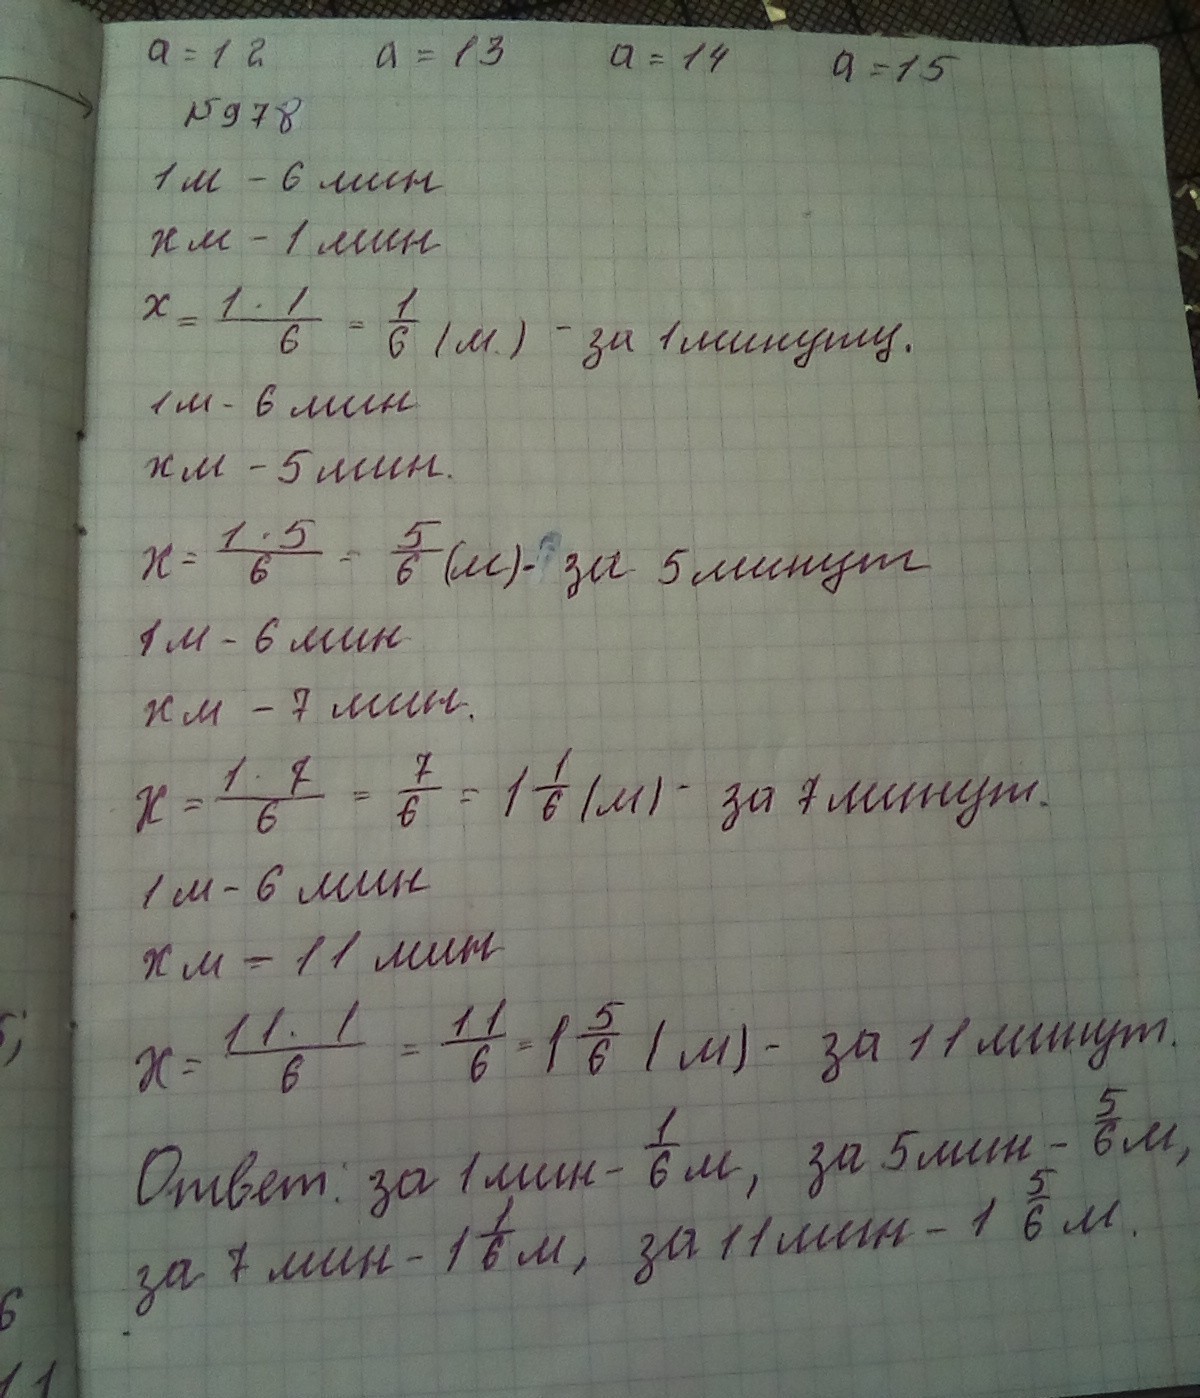 a = 12 a = 13 a = 14 a = 15
№978
1м - 6 мин
xм - 1 мин
x = 1 · 1/6 = 1/6 (м.) - за 1 минуту.
1м - 6 мин
xм - 5 мин.
x = 1 · 5/6 = 5/6 (м) - за 5 минут
1м - 6 мин
xм - 7 мин.
x = 1 · 7/6 = 7/6 = 1 1/6 (м) - за 7 минут.
1м - 6 мин
xм - 11 мин
x = 11 · 1/6 = 11/6 = 1 5/6 (м) - за 11 минут.
Ответ: за 1 мин - 1/6 м, за 5 мин - 5/6 м,
за 7 мин - 1 1/6 м, за 11 мин - 1 5/6 м.
5;
6
11